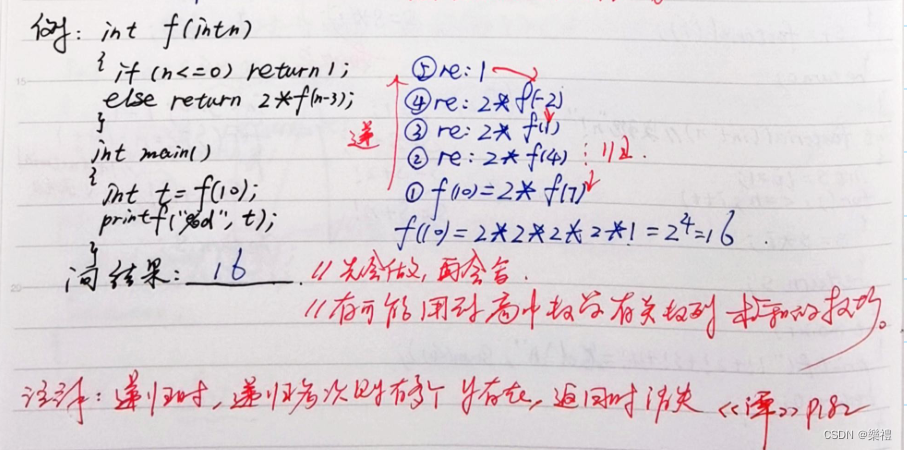 例: int f(int n)
{ if (n<=0) return 1;
else return 2*f(n-3);
}
int main()
{
int t = f(10);
printf("%d", t);
}
问结果: 16
递
⑤ re: 1
④ re: 2* f(-2)
③ re: 2* f(1)
② re: 2* f(4)
① f(10)=2* f(7)
f(10)=2*2*2*2*1=2⁴=16.
//先会做,再会
//有可能用到高中数学有关数列求和的技巧。
注意: 递归时,递归多次 时有多个 n 存在,返回时消失 《谭》P182
CSDN @樂禮